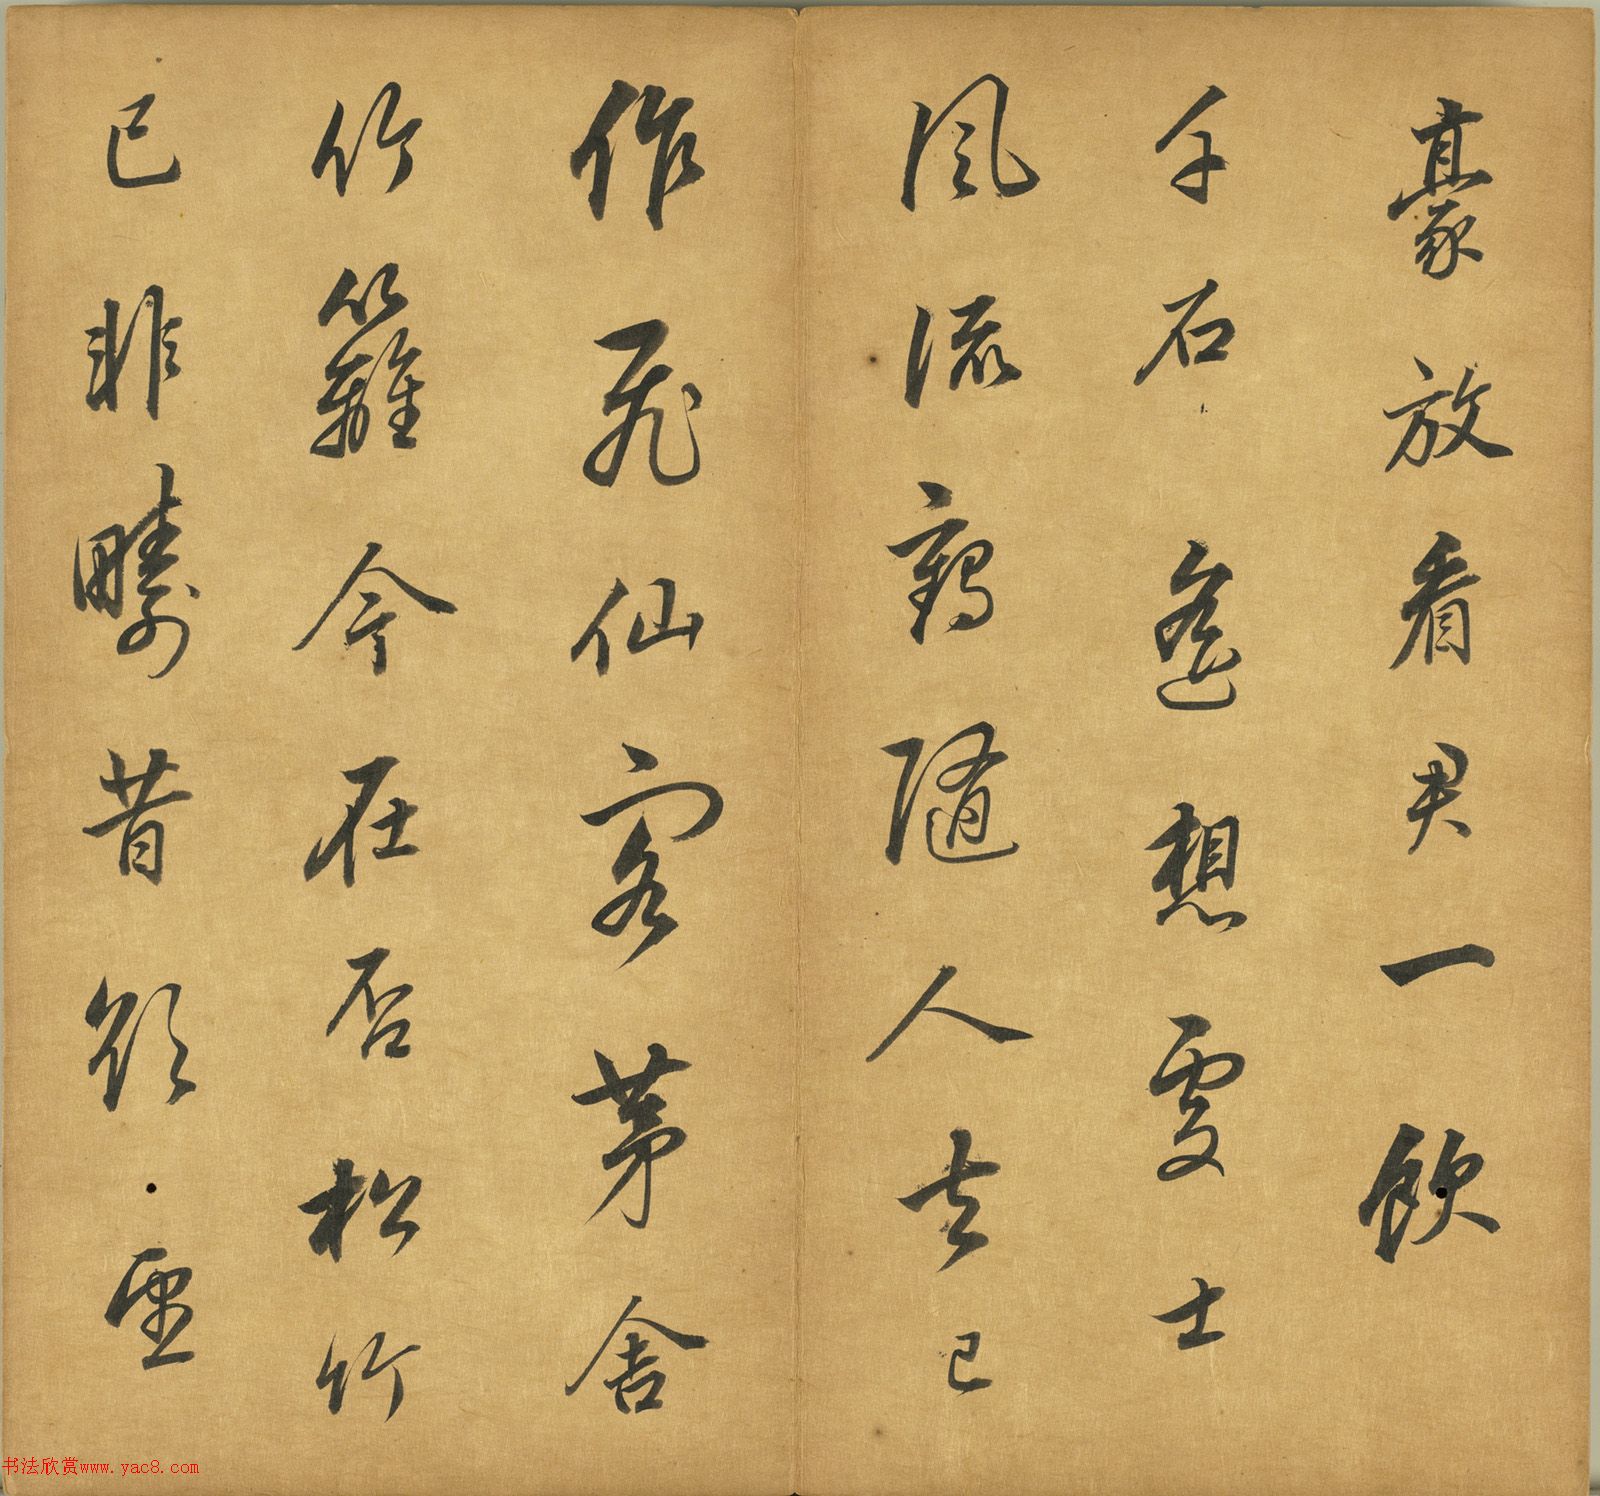 豪放看君一飲
千石遙想處士
風流鶴隨人去已
作飛仙客茅舍
竹籬今在否松竹
已非疇昔欲望
书法欣赏www.yac8.com